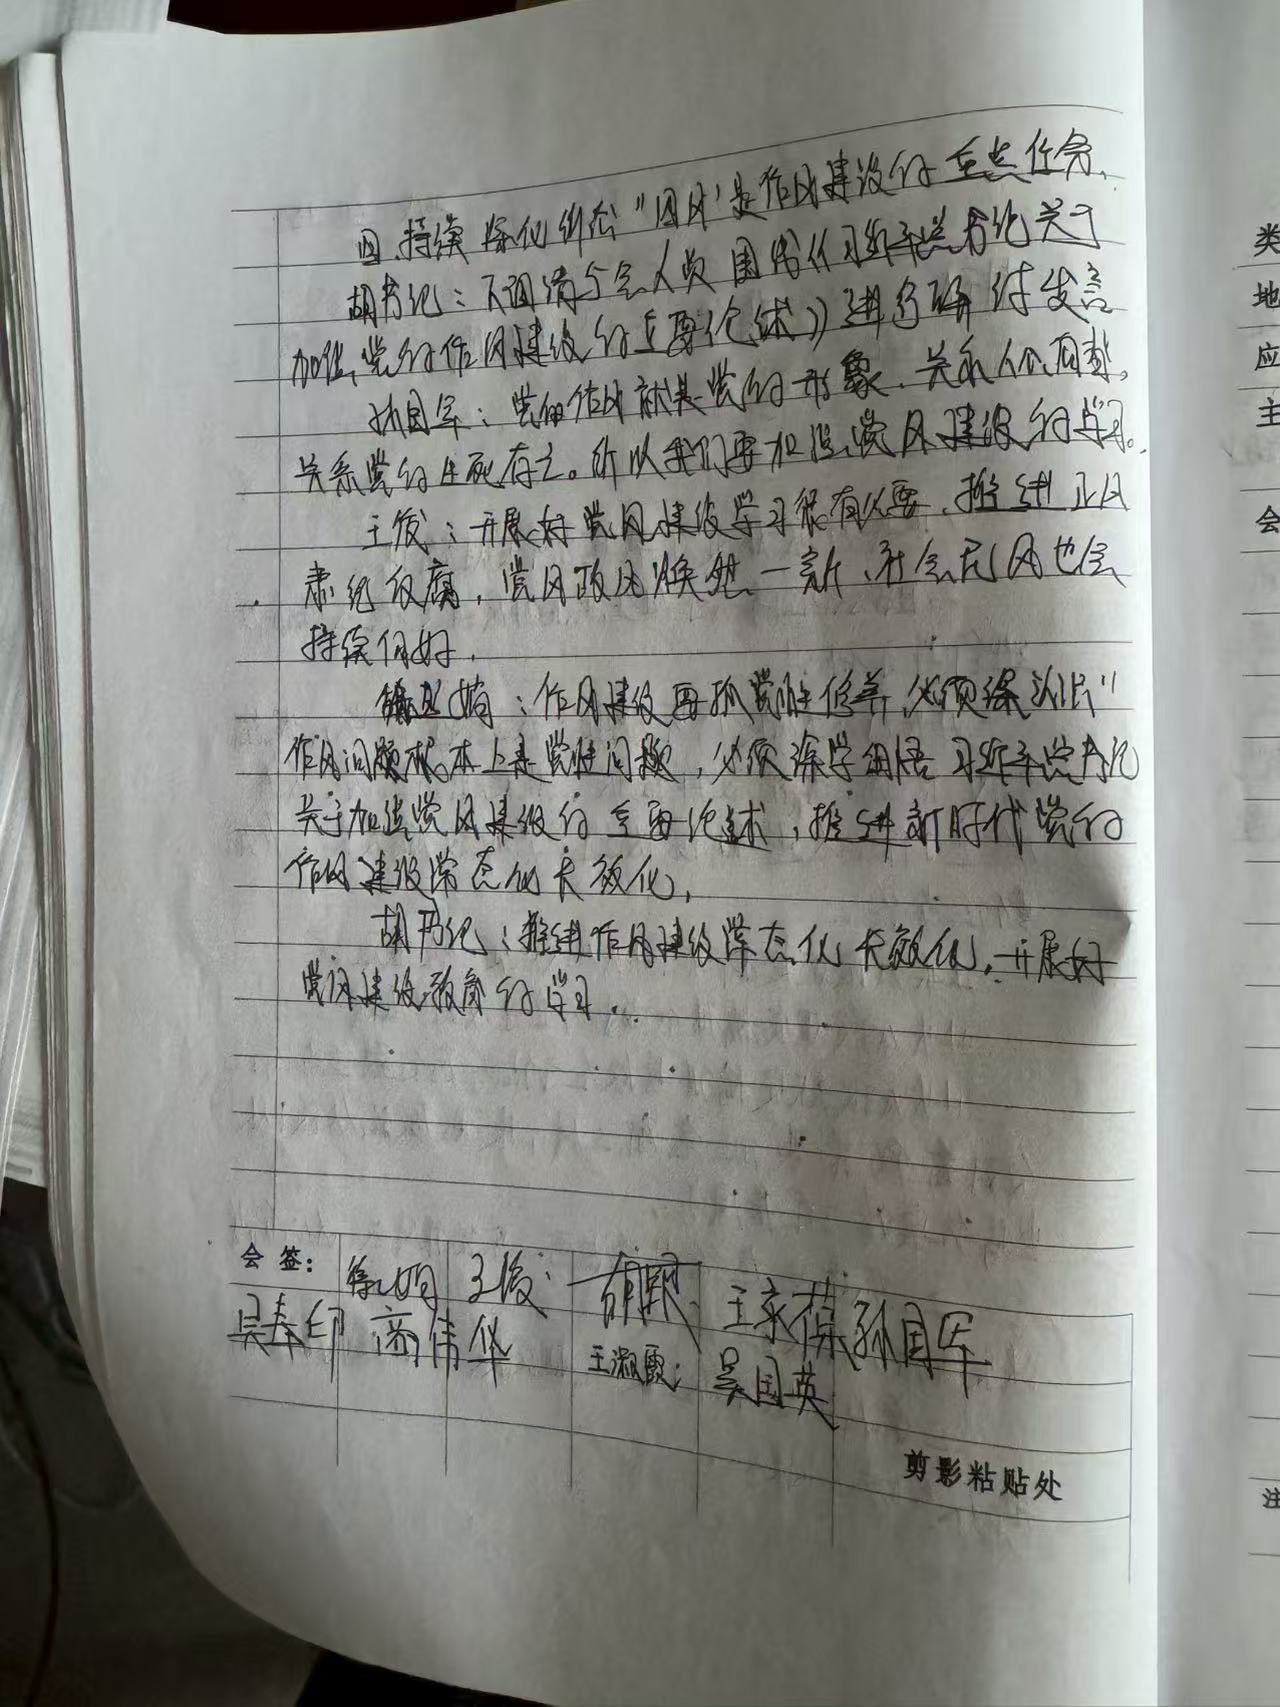 四、持续深化纠治"四风"是作风建设的重点任务、
胡书记：下面请与会人员围绕《习近平总书记关于
加强党的作风建设的重要论述》进行研讨发言
孙国军：党的作风就是党的形象、关系人心向背，
关系党的生死存亡。所以我们要加强党风建设的学习。
王俊：开展好党风建设学习很有必要、推进正风
肃纪反腐，党风政风焕然一新、社会民风也会
持续向好．
徐 娟：作风建设要抓党性修养、必须深认识"
作风问题根本上是党性问题，必须深学细悟习近平总书记
关于加强党风建设的重要论述，推进新时代党的
作风建设常态化长效化，
胡书记：推进作风建设常态化长效化，开展好
党风建设教育的学习...
会签： 徐 娟 王俊 胡 王家葆 孙国军
吴春印 高伟华 王淑霞 吴国英
剪影粘贴处
类
地
应
主
会
注